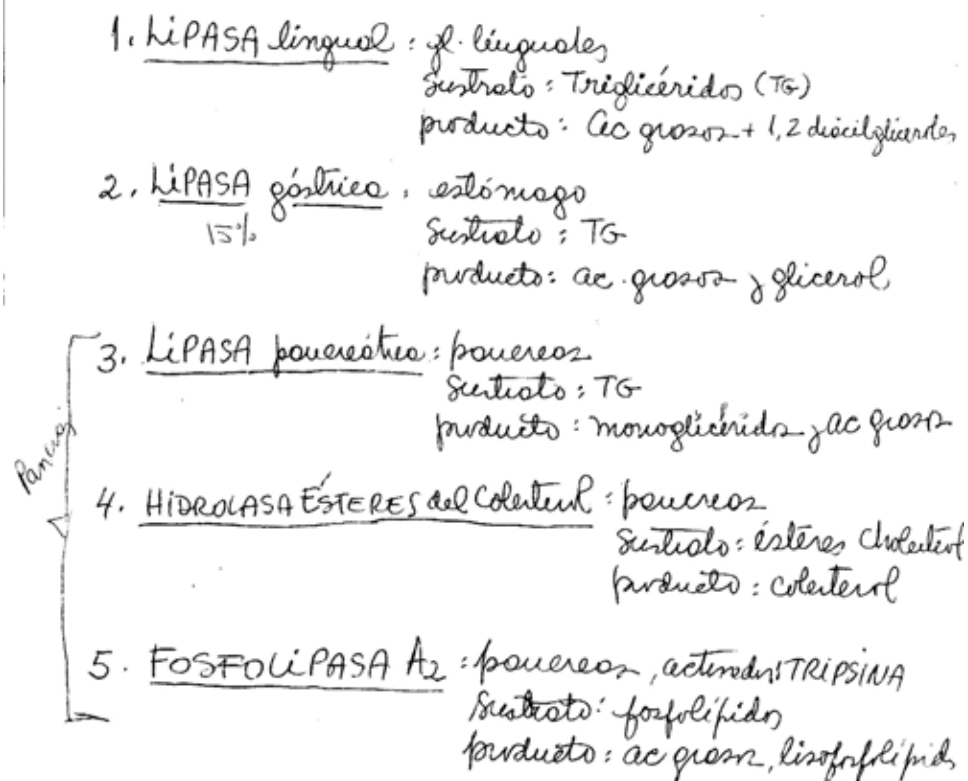 1. LiPASA lingual : gl. linguales
Sustrato : Triglicéridos (TG)
producto : ac grasos + 1,2 diacilgliceroles
2. LiPASA gástrica : estómago
15%
Sustrato : TG
producto : ac. grasos y glicerol
3. LiPASA pancreática : pancreas
Sustrato : TG
producto : monoglicéridos y ac grasos
Pancreas
4. HiDROLASA ÉSTERES del Colesterol : pancreas
Sustrato : ésteres Cholesterol
producto : colesterol
5. FOSFOLiPASA A2 : pancreas, activador: TRiPSINA
Sustrato : fosfolípidos
producto : ac grasos, lisofosfolípids